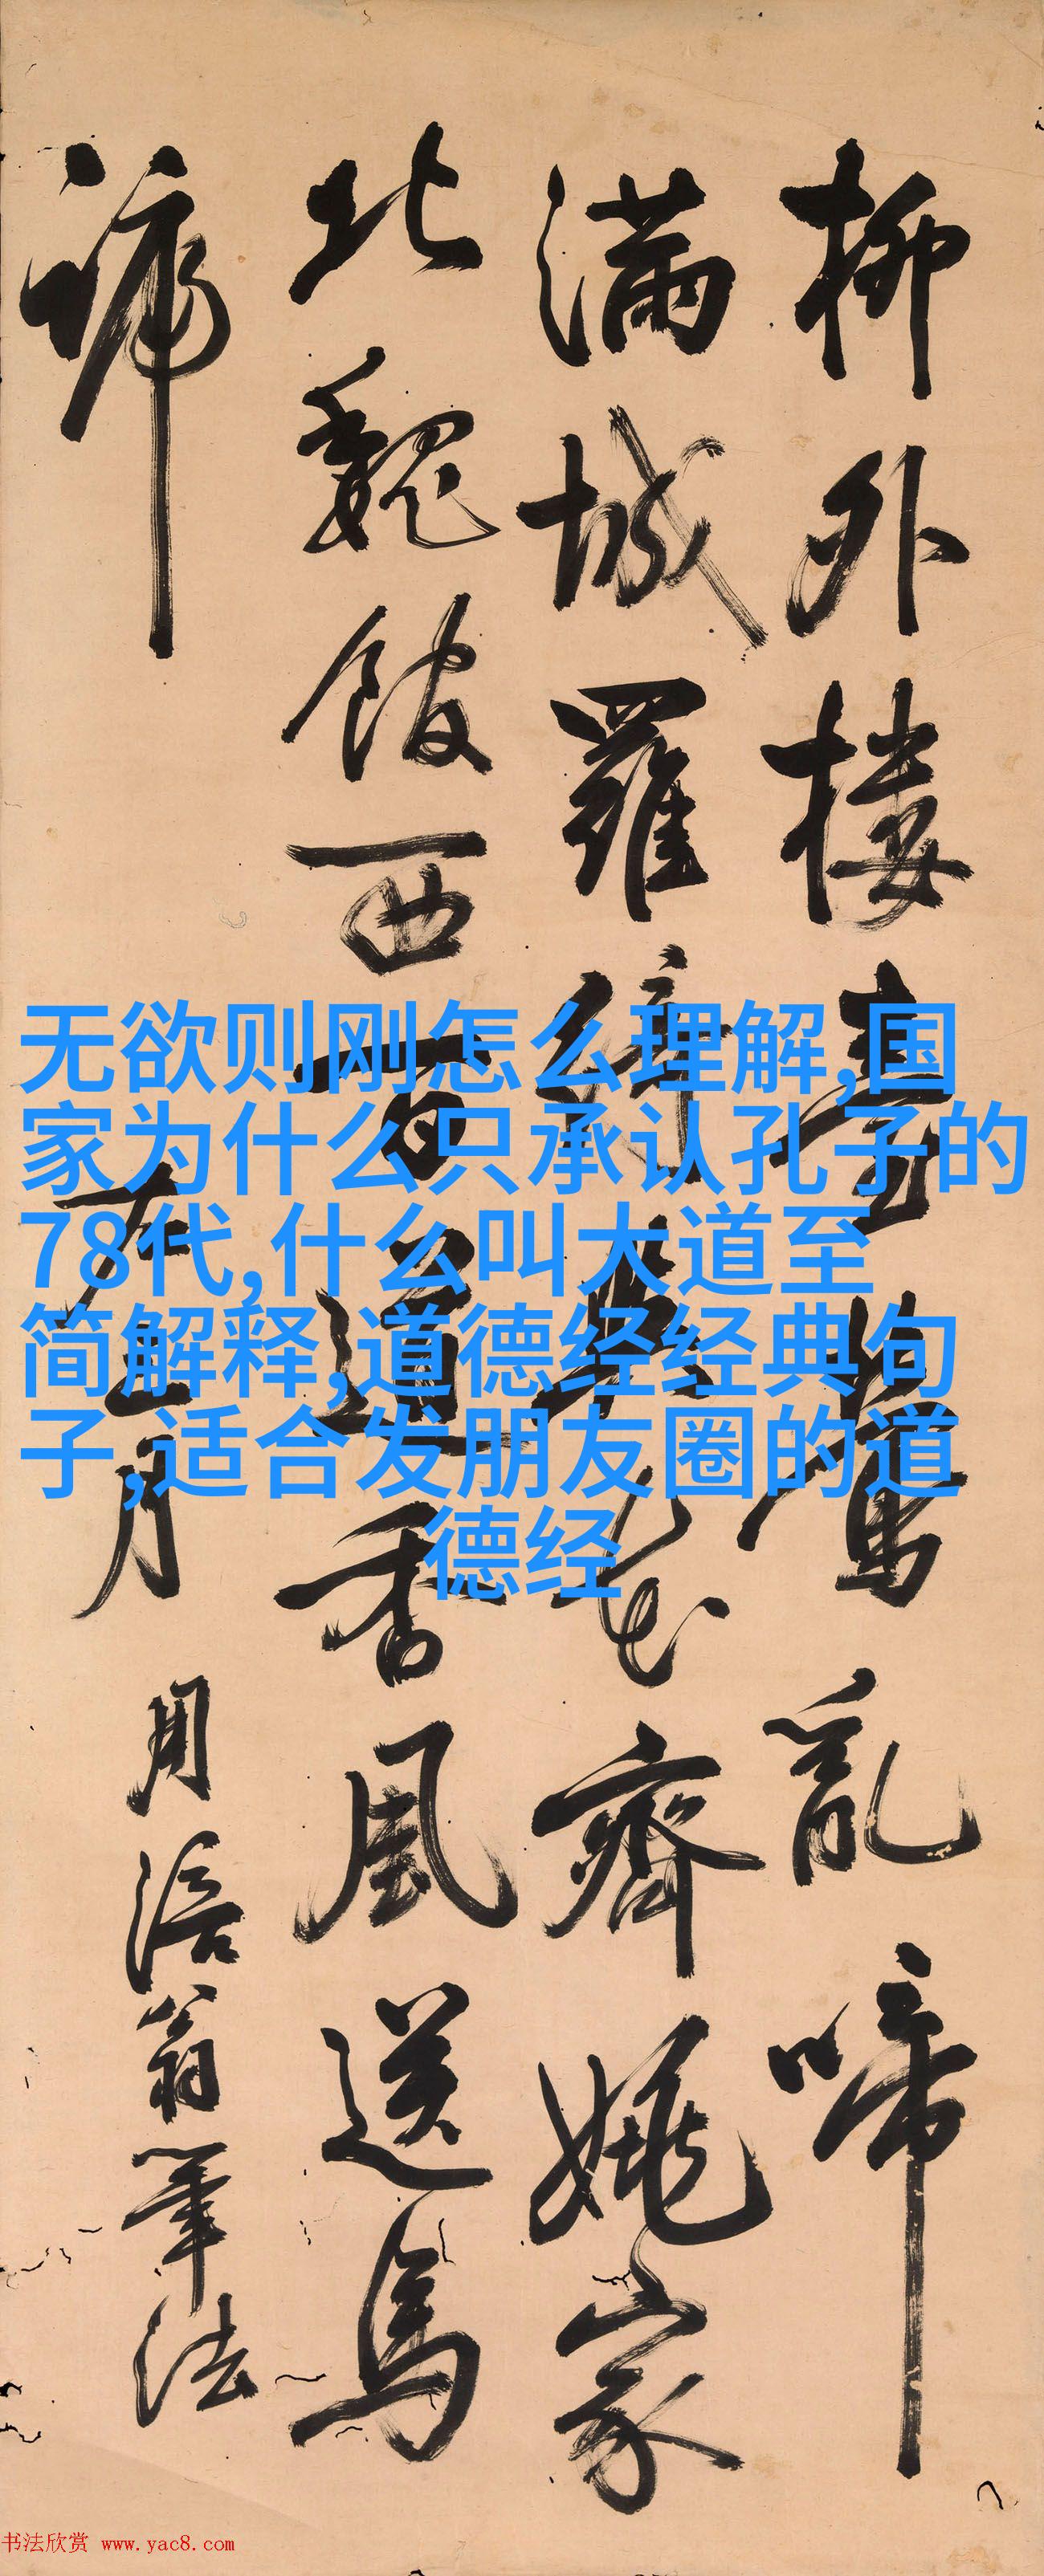 柳外樓臺鶯亂啼
滿城羅花齊姚家
北魏館西百道香風送馬
蹄
右五月
用涪翁筆法
无欲则刚怎么理解,国
家为什么只承认孔子的
78代,什么叫大道至
简解释,道德经经典句
子,适合发朋友圈的道
德经
书法欣赏 www.yac8.com